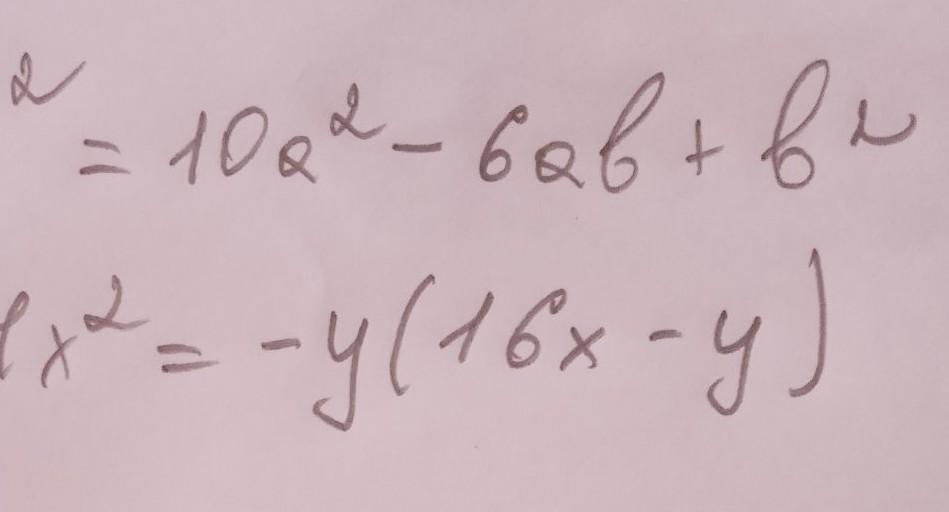 ² = 10a² - 6ab + b²
x² = -y(16x - y)